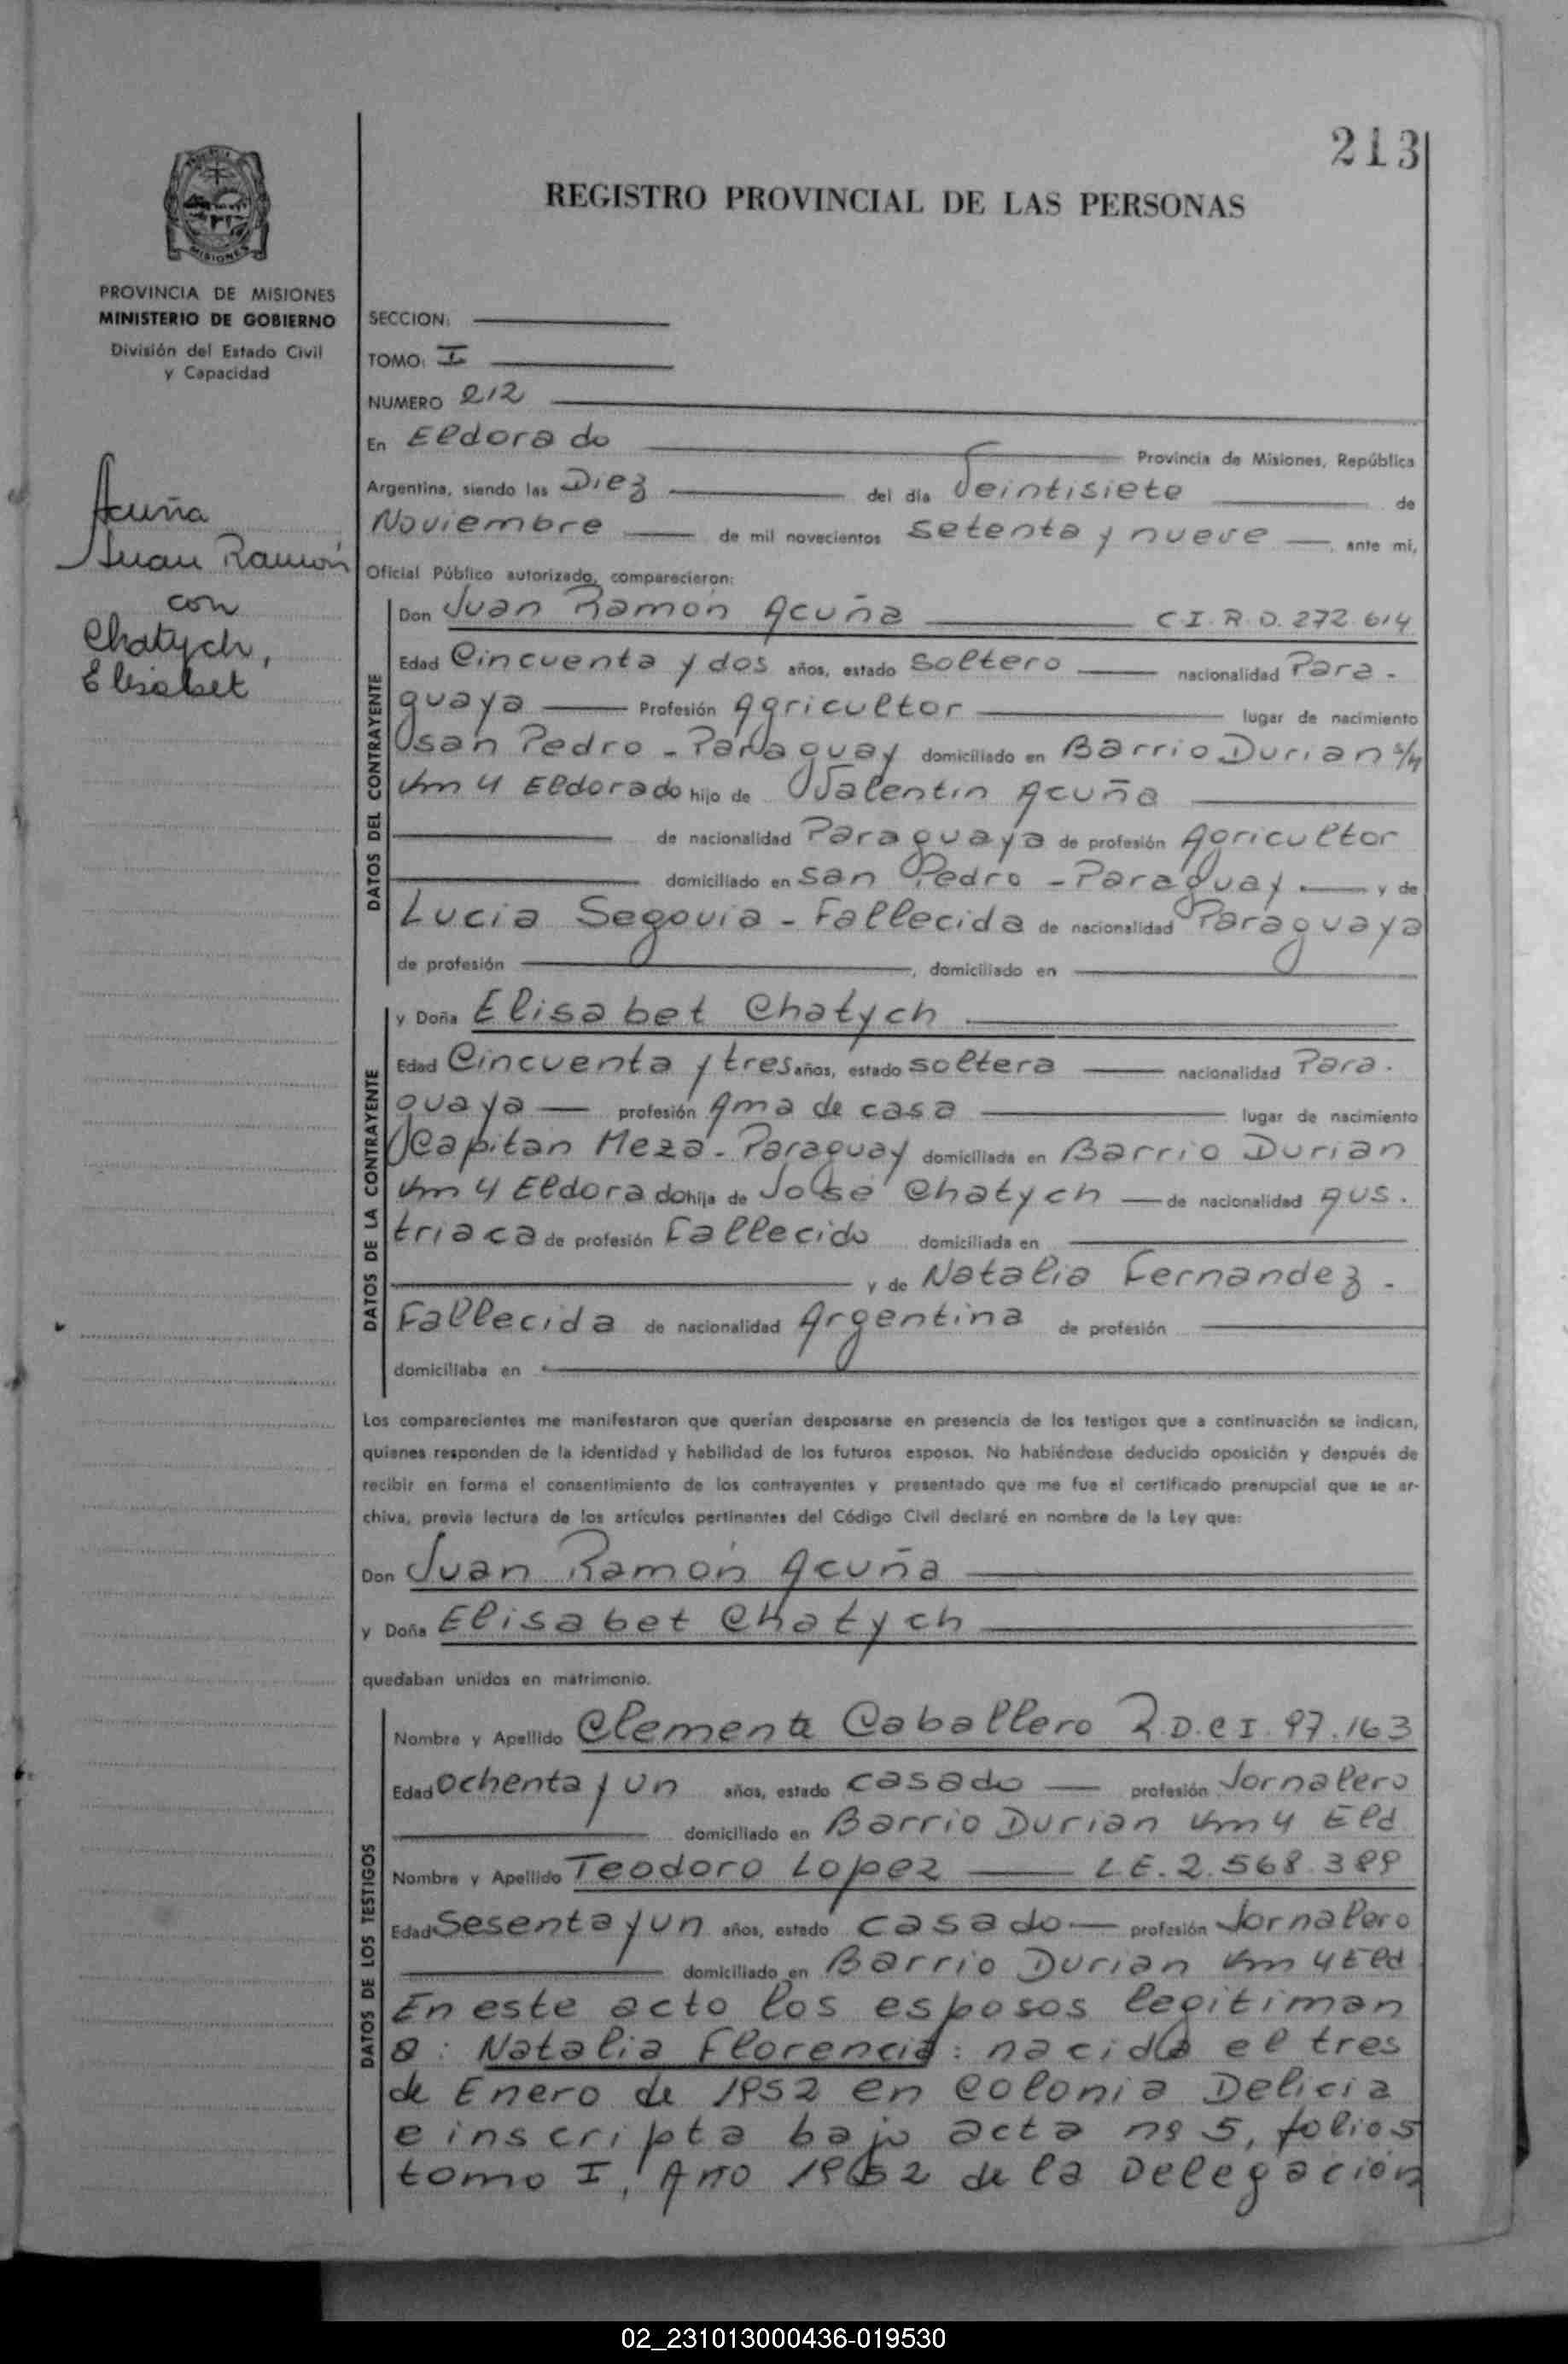 213
REGISTRO PROVINCIAL DE LAS PERSONAS
MISIONES
PROVINCIA DE MISIONES
MINISTERIO DE GOBIERNO
División del Estado Civil
y Capacidad
Acuña
Juan Ramón
con
Chatych,
Elisabet
SECCION:
TOMO: I
NUMERO 212
En Eldorado Provincia de Misiones, República
Argentina, siendo las Diez del día Veintisiete de
Noviembre de mil novecientos setenta y nueve, ante mi,
Oficial Público autorizado, comparecieron:
DATOS DEL CONTRAYENTE
Don Juan Ramón Acuña C.I.R.D. 272.614
Edad Cincuenta y dos años, estado soltero nacionalidad Para-
guaya Profesión Agricultor lugar de nacimiento
San Pedro - Paraguay domiciliado en Barrio Durian s/n
Km 4 Eldorado hijo de Valentin Acuña
de nacionalidad Paraguaya de profesión Agricultor
domiciliado en San Pedro - Paraguay. y de
Lucia Segovia - Fallecida de nacionalidad Paraguaya
de profesión , domiciliado en
DATOS DE LA CONTRAYENTE
y Doña Elisabet Chatych
Edad Cincuenta y tres años, estado soltera nacionalidad Para.
guaya profesión Ama de casa lugar de nacimiento
Capitan Meza - Paraguay domiciliada en Barrio Durian
Km 4 Eldorado hija de José Chatych de nacionalidad Aus.
triaca de profesión Fallecido domiciliada en
y de Natalia Fernandez -
Fallecida de nacionalidad Argentina de profesión
domiciliaba en
Los comparecientes me manifestaron que querían desposarse en presencia de los testigos que a continuación se indican,
quienes responden de la identidad y habilidad de los futuros esposos. No habiéndose deducido oposición y después de
recibir en forma el consentimiento de los contrayentes y presentado que me fue el certificado prenupcial que se ar-
chiva, previa lectura de los artículos pertinentes del Código Civil declaré en nombre de la Ley que:
Don Juan Ramón Acuña
y Doña Elisabet Chatych
quedaban unidos en matrimonio.
DATOS DE LOS TESTIGOS
Nombre y Apellido Clemente Caballero R.D.C.I. 97.163
Edad Ochenta y un años, estado casado profesión Jornalero
domiciliado en Barrio Durian Km 4 Eld
Nombre y Apellido Teodoro Lopez L.E. 2.568.389
Edad Sesenta y un años, estado casado profesión Jornalero
domiciliado en Barrio Durian Km 4 Eld
En este acto los esposos legitiman
a: Natalia Florencia: nacida el tres
de Enero de 1952 en Colonia Delicia
e inscripta bajo acta nº 5, folio 5
tomo I, Año 1952 de la Delegación
02_231013000436-019530